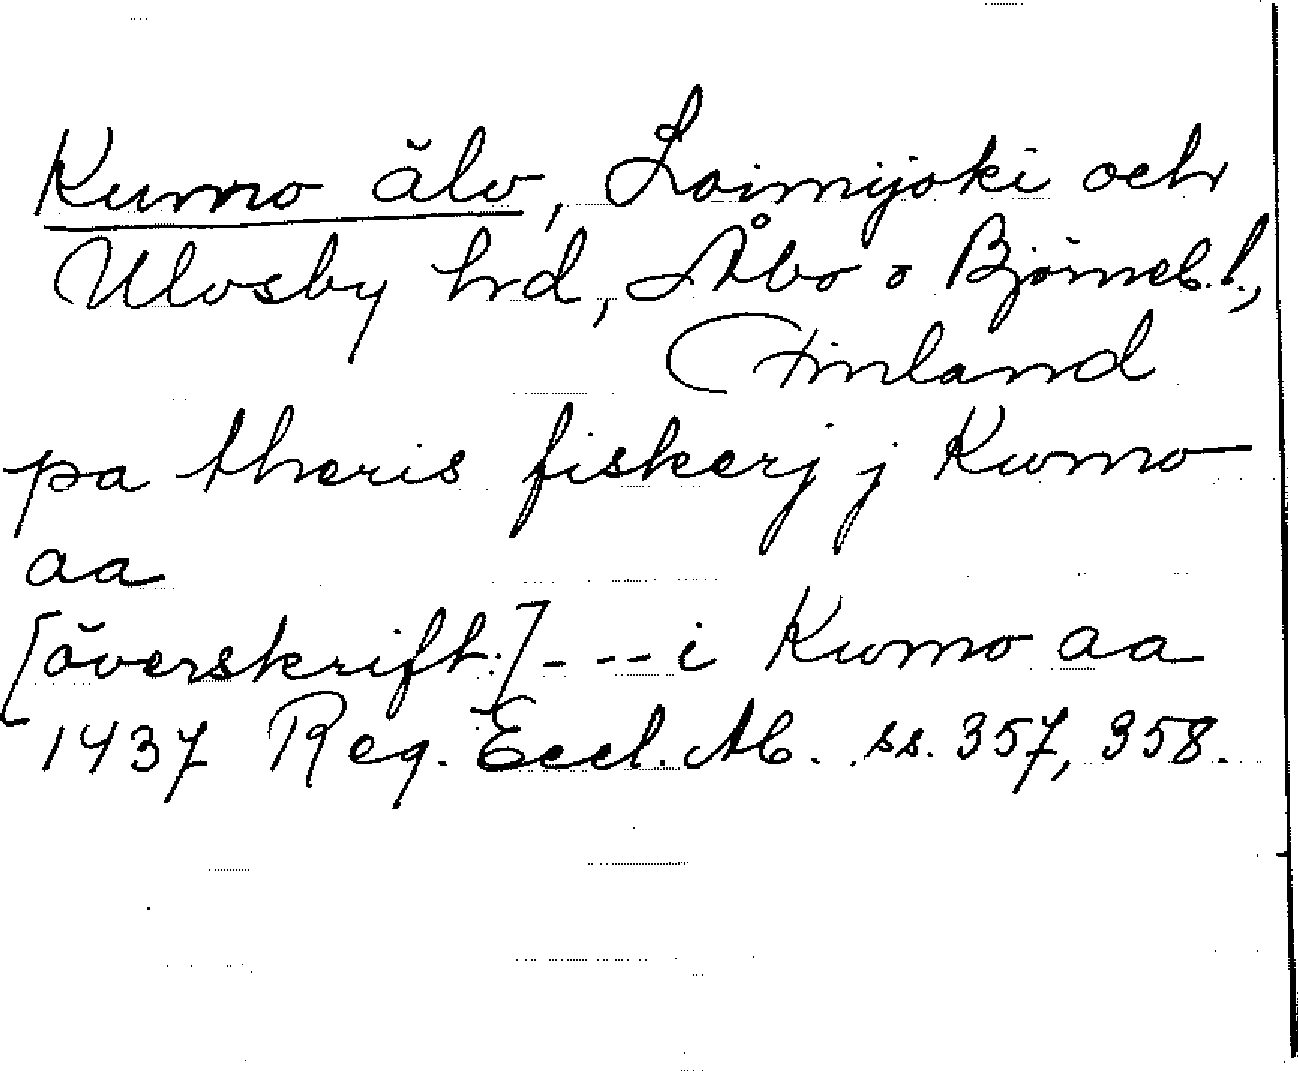 Kumo älv, Loimijoki och
Ulvsby hrd, Åbo o Björneb. l.,
Finland
pa theris fiskerj j Kwmo
aa
[överskift:] - - - i Kwmo aa
1437 Reg. Eccl. Ab. ss. 357, 358.